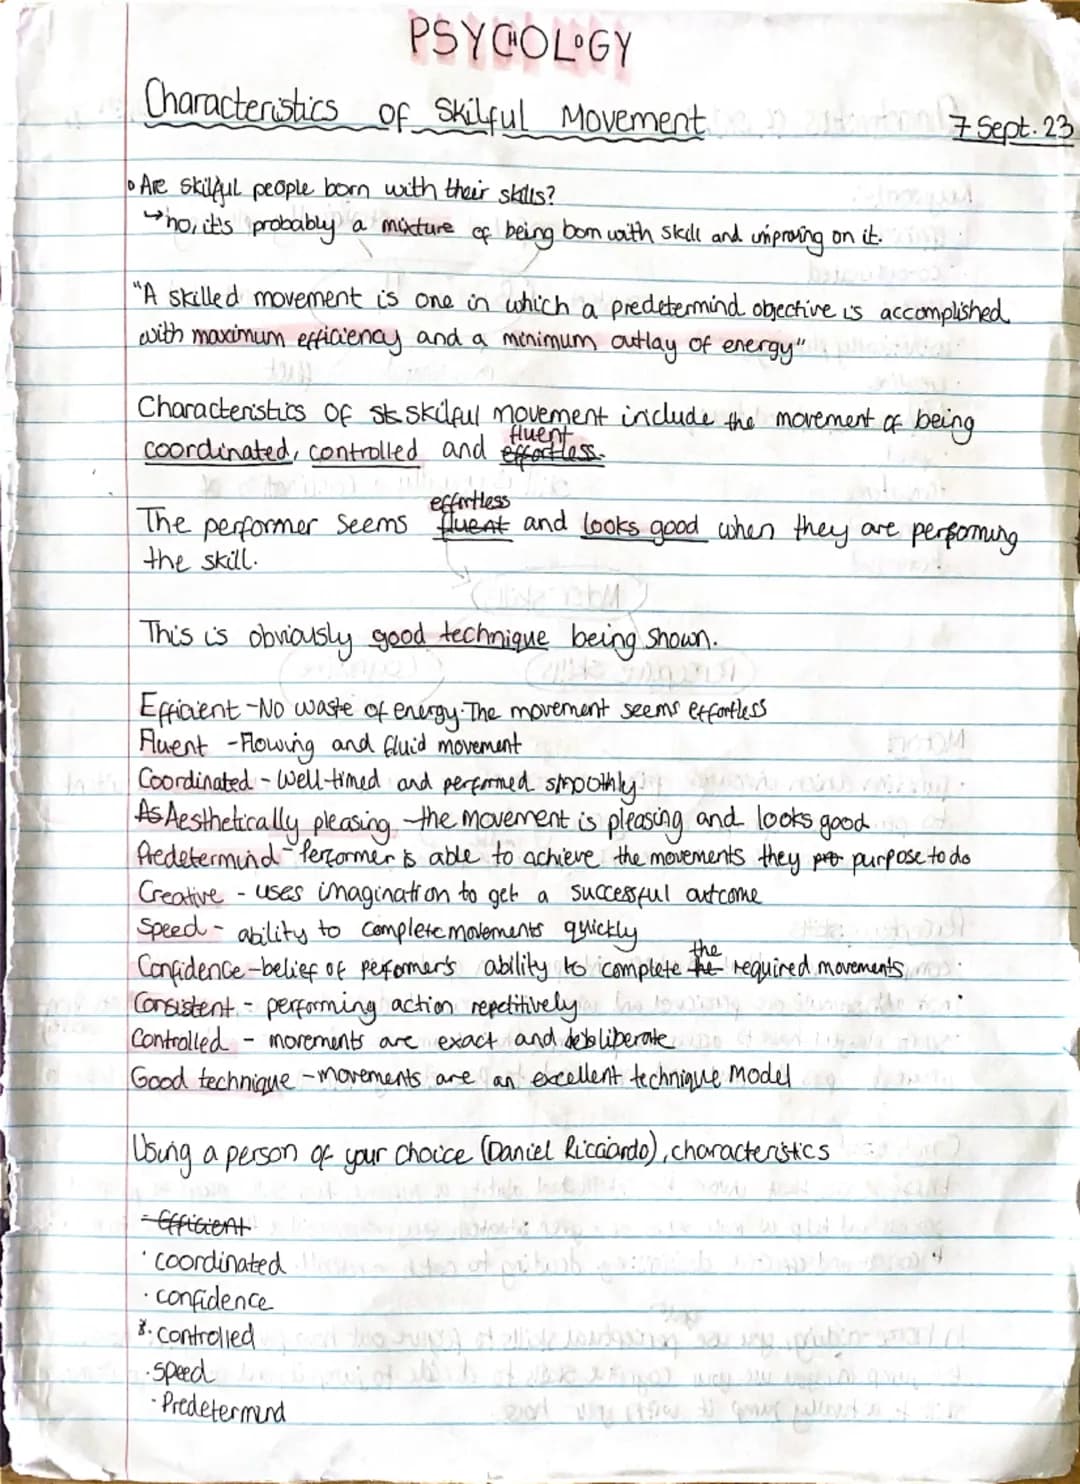 PSYCHOLOGY
Characteristics of Skilful Movement
7 Sept. 23
Are skilful people born with their skills?
↳no, it's probably a mixture of being born with skill and improving on it.
"A skilled movement is one in which a predetermind objective is accomplished
with maximum efficiency and a minimum outlay of energy"
Characteristics of st skilful movement include the movement of being
fluent
coordinated, controlled and effortless.
effortless
The performer seems fluent and looks good when they are performing
the skill.
This is obviously good technique being shown.
Efficient - No waste of energy. The movement seems effortless
Fluent - Flowing and fluid movement
Coordinated - Well-timed and performed smoothly
As Aesthetically pleasing - the movement is pleasing and looks good
Predetermind - Performer is able to achieve the movements they pro purpose to do
Creative - uses imagination to get a successful outcome
Speed - ability to complete movements quickly
the
Confidence - belief of performer's ability to complete the required movements
Consistent - performing action repetitively
Controlled - movements are exact and deliberate
Good technique - movements are an excellent technique model
Using a person of your choice (Daniel Ricciardo), characteristics
- Efficient
· coordinated
· confidence
· controlled
· speed
· Predetermind